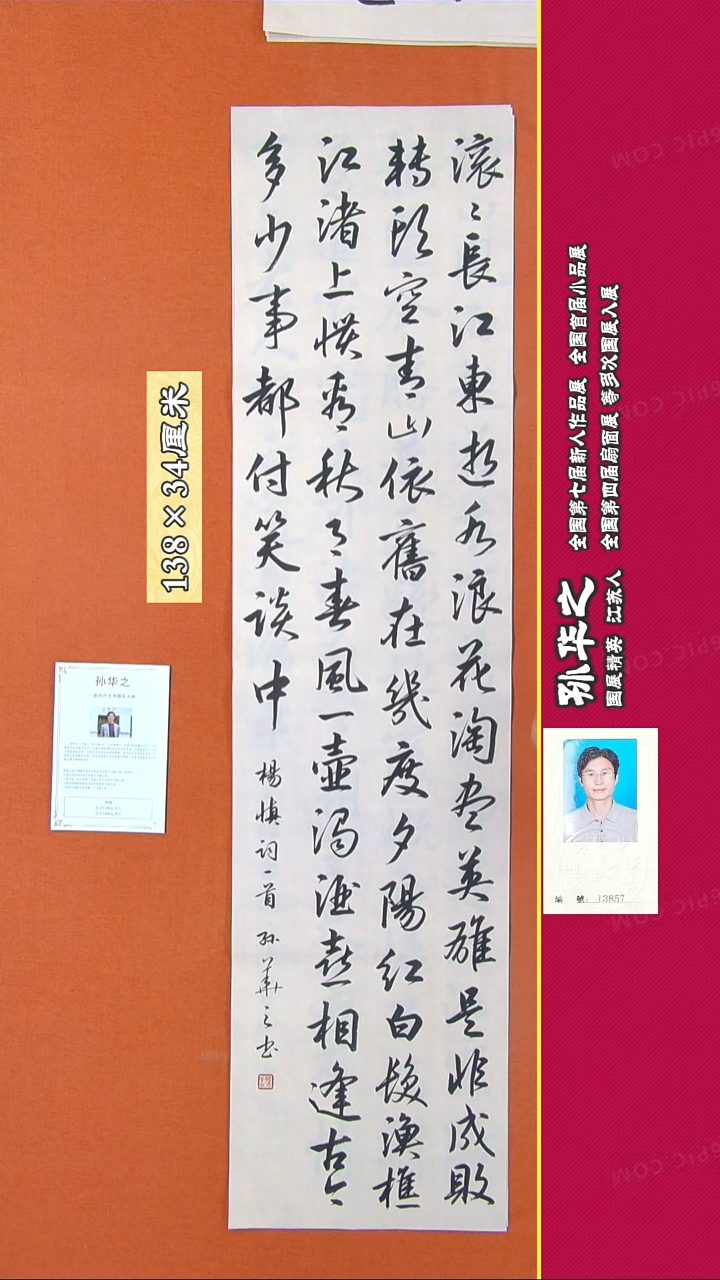 滚〻長江東逝水浪花淘尽英雄是非成敗
轉頭空青山依舊在幾度夕陽紅白髮漁樵
江渚上慣看秋月春風一壺濁酒喜相逢古今
多少事都付笑談中
楊慎詞一首 孫華之书
138×34厘米
孙华之
孙华之
国展精英 江苏人
全国第七届新人作品展 全国首届小品展
全国第四届扇面展 等多次国展入展
編 號: 13857